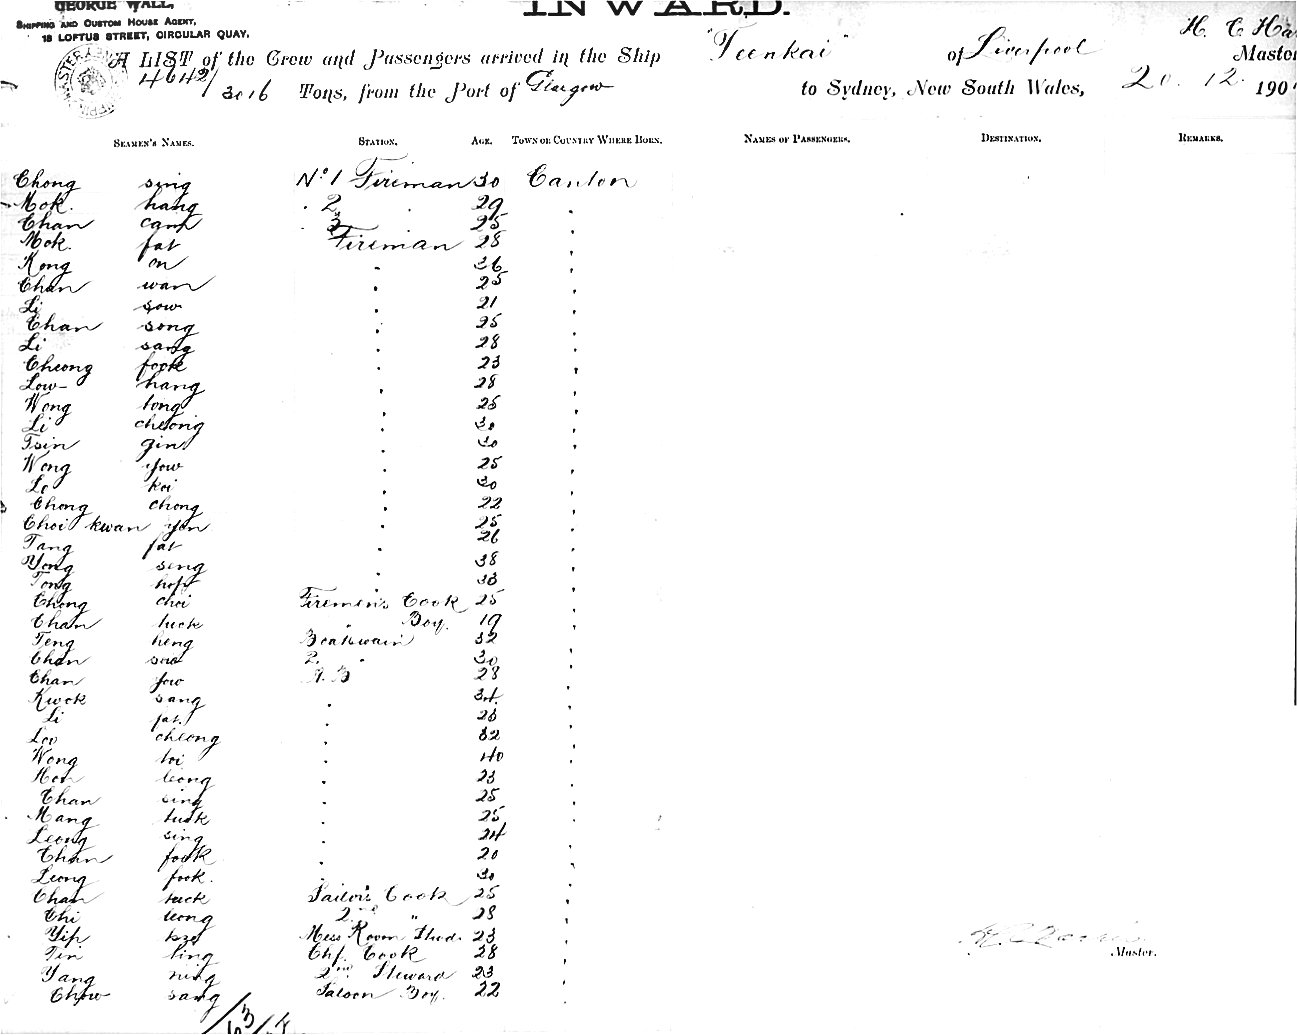 GEORGE WALL,
SHIPPING AND CUSTOM HOUSE AGENT,
18 LOFTUS STREET, CIRCULAR QUAY,
INWARD.
A LIST of the Crew and Passengers arrived in the Ship "Teenkai" of Liverpool H. C. Master
4642/3016 Tons, from the Port of Glasgow to Sydney, New South Wales, 20. 12. 190
SEAMEN'S NAMES. STATION. AGE. TOWN OR COUNTRY WHERE BORN. NAMES OF PASSENGERS. DESTINATION. REMARKS.
Chong sing No 1 Fireman 30 Canton
Mok. hang . 2 . 29 "
Chan cam . 3 25 "
Mok. fat Fireman 28 "
Kong on " 36 "
Chan wan " 25 "
Li sow " 21 "
Chan song " 25 "
Li sang " 28 "
Cheong fook " 23 "
Low hang " 28 "
Wong tong " 25 "
Li cheong " 30 "
Tsin gin " 30 "
Wong yow " 25 "
Le koi " 30 "
Chong chong " 22 "
Choi kwan yen " 25 "
Tang fat " 26 "
Yong seng " 38 "
Tong hop " 33 "
Chong choi Firemen's Cook 25 "
Chan tuck " Boy. 19 "
Teng heng Boatswain 32 "
Chan 2. " 30 "
Chan yow A.B 28 "
Kwok sang " 34 "
Li fat " 28 "
Loo cheong " 32 "
Wong loi " 40 "
Hon leong " 23 "
Chan sing " 25 "
Mang tuck " 25 "
Leong sing " 24 "
Chan fook " 20 "
Leong fook. " 30 "
Chan tuck Sailor's Cook 25 "
Chi leong 2nd " 28 "
Yip Mess Room Stwd. 23 "
Tin ling Chf. Cook 28 "
Yang ning 2nd Steward 23 "
Chow sang Saloon Boy. 22 "
Master.